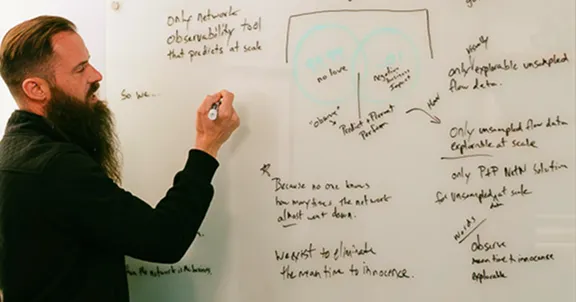 only network
observability tool
that predicts at scale
So we...
no love
negative
business
impact
"observe"
Predict + Prevent
Perform
Now
Visually
only explorable unsampled
flow data.
only unsampled flow data
explorable at scale
only P+P NetN Solution
for unsampled at scale
data
Because no one knows
how many times the network
almost went down.
We exist to eliminate
the mean time to innocence.
words
observe
mean time to innocence
explorable
the network is the